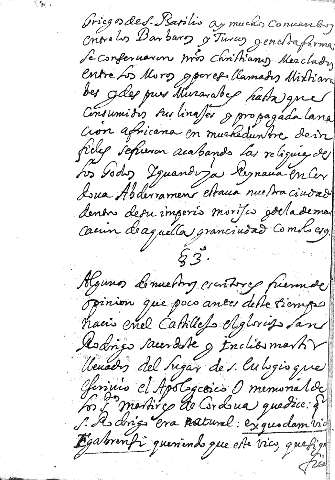 griegos de S. Basilio ay muchos conventos
entre los Barbaros y Turcos y en esta forma
se conservaron nros Christianos Mezclados
entre los Moros y por eso llamados Mistiara
bes y despues Muzarabes hasta que
consumidos sus linages y propagada la na
cion africana en muchedumbre de in
fieles se fueron acabando las reliquias de
los Godos y quando ya Reynava en Cor
dova Abderramen estava nuestra ciudad
dentro de su imperio morisco y de la demar
cacion de aquella gran ciudad como lo esy
§ 3º
Algunos de nuestros escritores fueron de
opinion que poco antes deste tiempo
nacio en el Castillejo el glorioso san
Rodrigo sacerdote y Enclito martir
llevados del lugar de S. Eulogio que
escrivio el Apologetico o memorial de
los Stos martires de Cordova que dice: q
S. Rodrigo era natural: ex quodam vico
Egabrensi queriendo que este vico, que sig